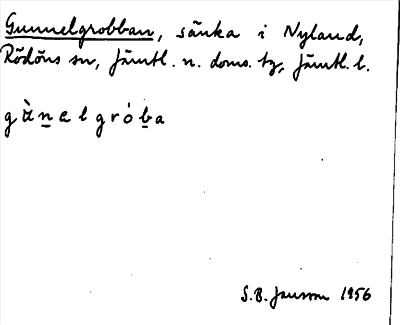 Gunnelgrobban, sänka i Nyland,
Rödöns sn, Jämtl. n. doms. tg, Jämtl. l.
gùn̲elgrób̲a
S.B. Jansson 1956